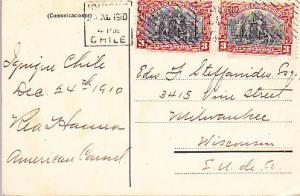 (Comunicaciones)
1910
4 PM
CHILE
3 3 3
Iquique Chile
Dec. 24th 1910
Rea Hanna
American Consul
Edw. F. Steffanides, Esq.
3415 Vine Street
Milwaukee
Wisconsin
E.U. de A.